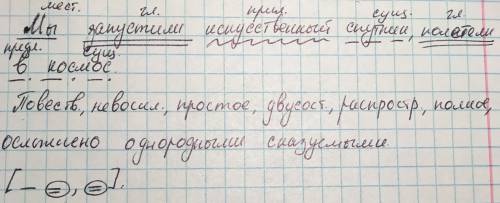 мест. гл. прил. сущ. гл.
Мы запустили искусственный спутник, полетели
предл. сущ.
в космос.
Повеств, невоскл, простое, двусост, распростр, полное,
осложнено однородными сказуемыми.
[– =, =].